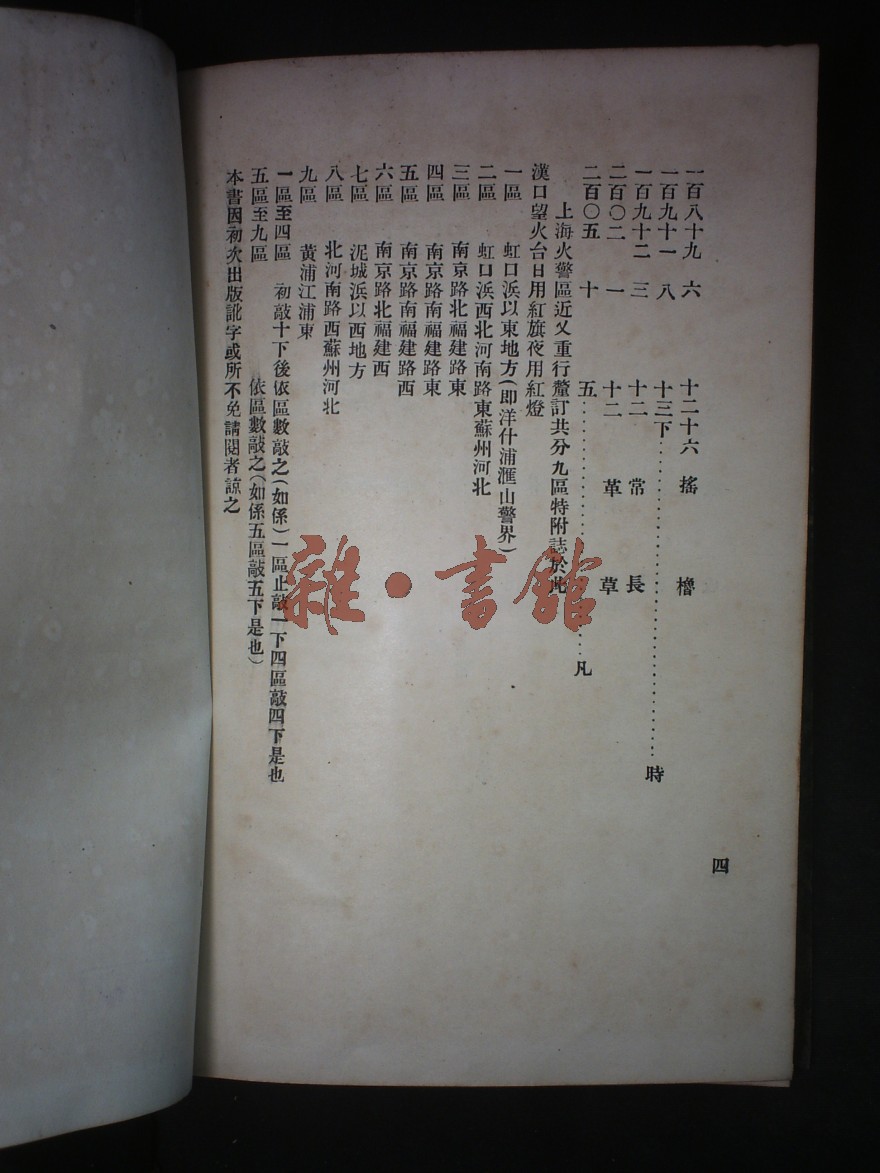 一百八十九 六 十二十六 搖 櫓
一百九十一 八 十三下……………………………時
一百九十二 三 十二 常 長
二百〇二 一 十二 革 草
二百〇五 十 五……………………………凡
上海火警區近又重行釐訂共分九區特附誌於此
漢口望火台日用紅旗夜用紅燈
一區 虹口浜以東地方(即洋什浦滙山警界)
二區 虹口浜西北河南路東蘇州河北
三區 南京路北福建路東
四區 南京路南福建路東
五區 南京路南福建路西
六區 南京路北福建西
七區 泥城浜以西地方
八區 北河南路西蘇州河北
九區 黃浦江浦東
一區至四區 初敲十下後依區數敲之(如係)一區止敲一下四區敲四下是也
五區至九區 依區數敲之(如係五區敲五下是也)
本書因初次出版訛字或所不免請閱者諒之
四
雜·書館